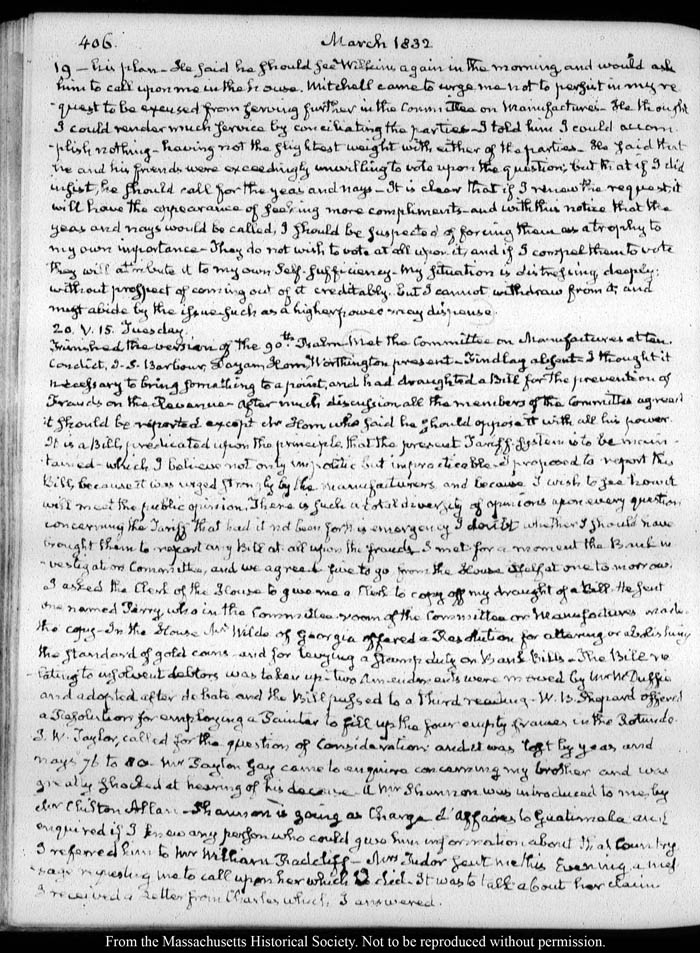 406.
March 1832
19 – his plan – He said he should see Wilkins again in the morning and would ask
him to call upon me in the House. Mitchell came to urge me not to persist in my re
-quest to be excused from serving further in the Committee on Manufactures – He thought
I could render much service by conciliating the parties – I told him I could accom
-plish nothing – having not the slightest weight with either of the parties – He said that
he and his friends were exceedingly unwilling to vote upon the question; but that if I did
insist, he should call for the yeas and nays – It is clear that if I renew the request, it
will have the appearance of seeking more compliments – and with this notice that the
yeas and nays would be called, I should be suspected of forcing them as a trophy to
my own importance – They do not wish to vote at all upon it, and if I compel them to vote
they will attribute it to my own Self-sufficiency – My situation is distressing deeply:
without prospect of coming out of it creditably. But I cannot withdraw from it, and
must abide by the issue such as a higher power may dispense.
20. V. 15. Tuesday.
Finished the version of the 90th Psalm – Met the Committee on Manufactures at ten.
Condict, J. S. Barbour, Dayan, Horn, Worthington present – Findlay absent – I thought it
necessary to bring something to a point, and had draughted a Bill for the prevention of
Frauds on the Revenue – After much discussion all the members of the Committee agreed
it should be reported except Mr Horn who said he should oppose it with all his power.
It is a Bill, predicated upon the principle that the present Tariff-System is to be main
-tained – which I believe not only impolitic but impracticable – I proposed to report this
Bill, because it was urged strongly by the manufacturers and because I wish to see how it
will meet the public opinion. There is such a total diversity of opinions upon every question
concerning the Tariff that had it not been for this emergency I doubt whether I should have
brought them to report any Bill at all upon the frauds. I met for a moment the Bank in
-vestigation Committee, and we agreed five to go from the House itself at one to morrow.
I asked the Clerk of the House to give me a Clerk to copy off my draught of a Bill. He sent
one named Terry, who in the Committee-room of the Committee on Manufactures made
the copy – In the House Mr Wilde of Georgia offered a Resolution for altering or abolishing
the standard of gold coins – and for levying a stamp duty on Bank Bills – The Bill re
-lating to insolvent debtors was taken up: two Amendments were moved by Mr McDuffie
and adopted after debate and the Bill passed to a third reading – W. B. Shepard offered
a Resolution for employing a Painter to fill up the four empty frames in the Rotunda
J. W. Taylor, called for the question of Consideration: and it was lost by yeas and
nays 76 to 80. Mr Payton Gay came to enquire concerning my brother and was
greatly shocked at hearing of his decease – A Mr Shannon was introduced to me by
Mr Chilton Allan – Shannon is going as Chargé d'Affaires to Guatemala and
enquired if I knew any person who could give him information about that Country
I referred him to Mr William Radcliff – Mrs Tudor sent me this Evening a mes
-sage requesting me to call upon her which I did – It was to talk about her claim
I received a Letter from Charles which I answered.
From the Massachusetts Historical Society. Not to be reproduced without permission.